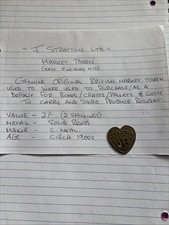 - J STRATTON LTD -
MARKET TOKEN
GENUINE ORIGINAL BRITISH MARKET TOKEN
USED TO WERE USED TO PURCHASE/AS A
DEPOSIT FOR BOXES/CRATES/PALLETS & SUCH
TO CARRY AND STORE PRODUCE BOUGHT
VALUE - 2/- (2 SHILLINGS)
METAL - SOLID BRASS
MAKER - C. NEAL
AGE - CIRCA 1900s